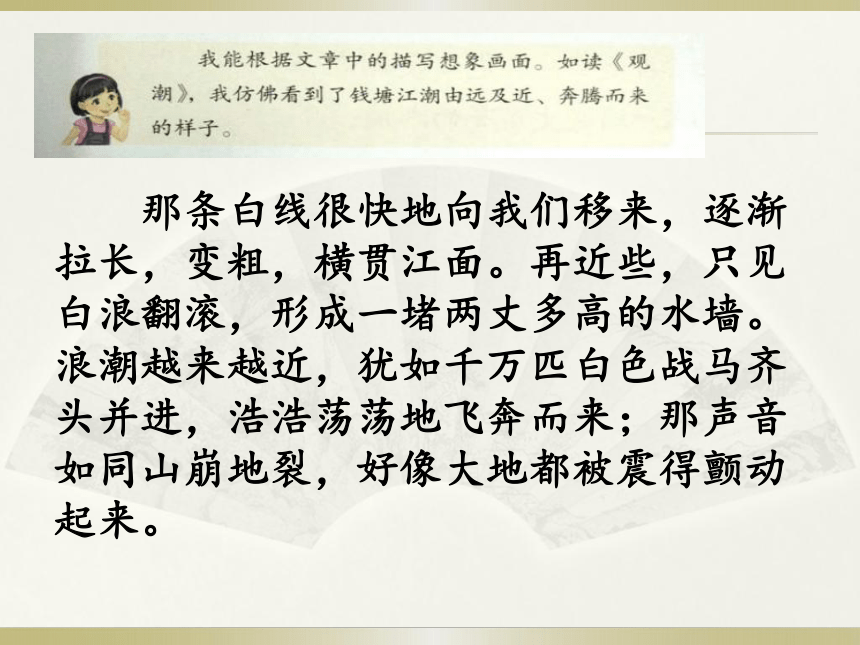 我能根据文章中的描写想象画面。如读《观
潮》，我仿佛看到了钱塘江潮由远及近、奔腾而来
的样子。
那条白线很快地向我们移来，逐渐
拉长，变粗，横贯江面。再近些，只见
白浪翻滚，形成一堵两丈多高的水墙。
浪潮越来越近，犹如千万匹白色战马齐
头并进，浩浩荡荡地飞奔而来；那声音
如同山崩地裂，好像大地都被震得颤动
起来。